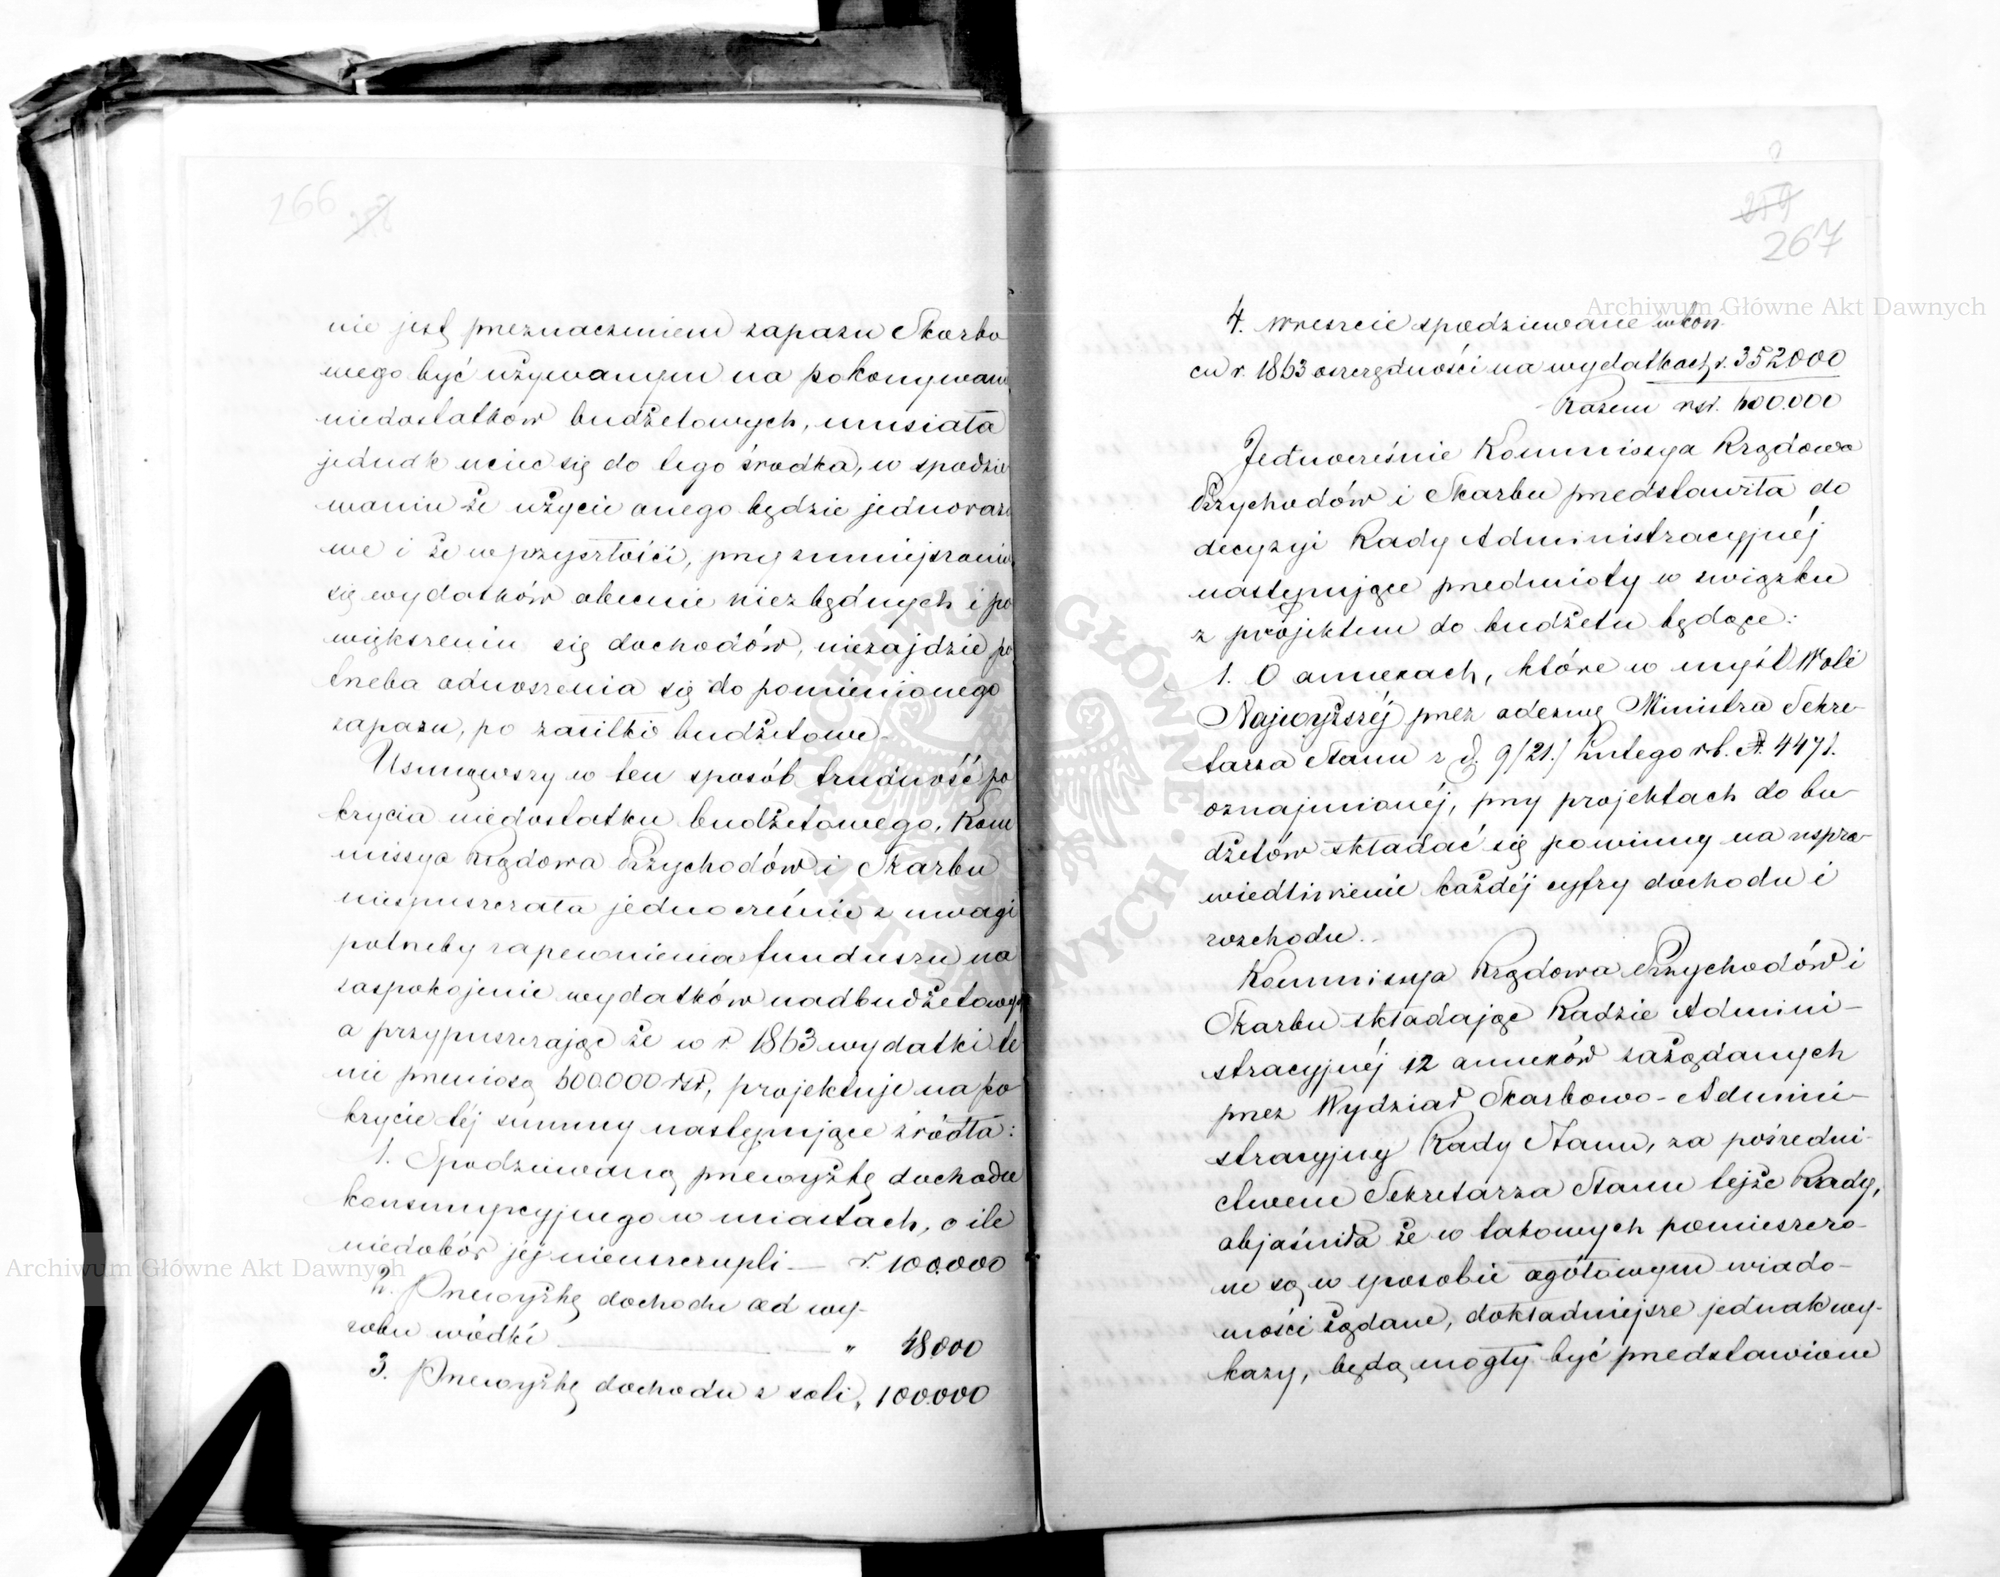 266
nie jest przeznaczeniem zapasu Skarbo
wego być używanym na pokonywan
niedostatków budżetowych, musiała
jednak uciec się do tego środka, w spodzie
waniu że użycie onego będzie jednorazo
we i że w przyszłości, przy zmniejszeniu
się wydatków obecnie niezbędnych i po
większeniu się dochodów, niezajdzie po
trzeba odnoszenia się do pomienionego
zapasu, po zasiłki budżetowe.
Usunąwszy w ten sposób trudność po
krycia niedostatku budżetowego, Kom
missya Rządowa Przychodów i Skarbu
niespuszczała jednocześnie z uwagi
potrzeby zapewnienia funduszu na
zaspokojenie wydatków nadbudżetowych
a przypuszczając że w r. 1863 wydatki te
nie przeniosą 600.000 rsr, projektuje na po
krycie téj summy następujące źródła:
1. Spodziewaną przewyżkę dochodu
konsumpcyjnego w miastach, o ile
niedobór jéj nieuszczupli — r. 100.000
2. Przewyżkę dochodu od wy-
robu wódki — " 48.000
3. Przewyżkę dochodu z soli " 100.000
Archiwum Główne Akt Dawnych
259
267
Archiwum Główne Akt Dawnych
4. Wreszcie spodziewane w koń-
cu r. 1863 oszczędności na wydatkach r. 352.000
Razem rsr. 600.000
Jednocześnie Kommissya Rządowa
Przychodów i Skarbu przedstawiła do
decyzyi Rady Administracyjnéj
następujące przedmioty w związku
z projektem do budżetu będące:
1. O annexach, które w myśl Woli
Najwyższéj przez odezwę Ministra Sekre-
tarza Stanu z d. 9/21./ Lutego rb. N. 4471.
oznajmionéj, przy projektach do bu-
dżetów składać się powinny na uspra-
wiedliwienie każdéj cyfry dochodu i
rozchodu.
Kommissya Rządowa Przychodów i
Skarbu składając Radzie Admini-
stracyjnéj 12 annexów zażądanych
przez Wydział Skarbowo-Admini-
stracyjny Rady Stanu, za pośredni-
ctwem Sekretarza Stanu tejże Rady,
objaśniła że w takowych pomieszczo-
ne są w sposobie ogółowym wiado-
mości żądane, dokładniejsze jednak wy-
kazy, będą mogły być przedstawione
ARCHIWUM GŁÓWNE AKT DAWNYCH